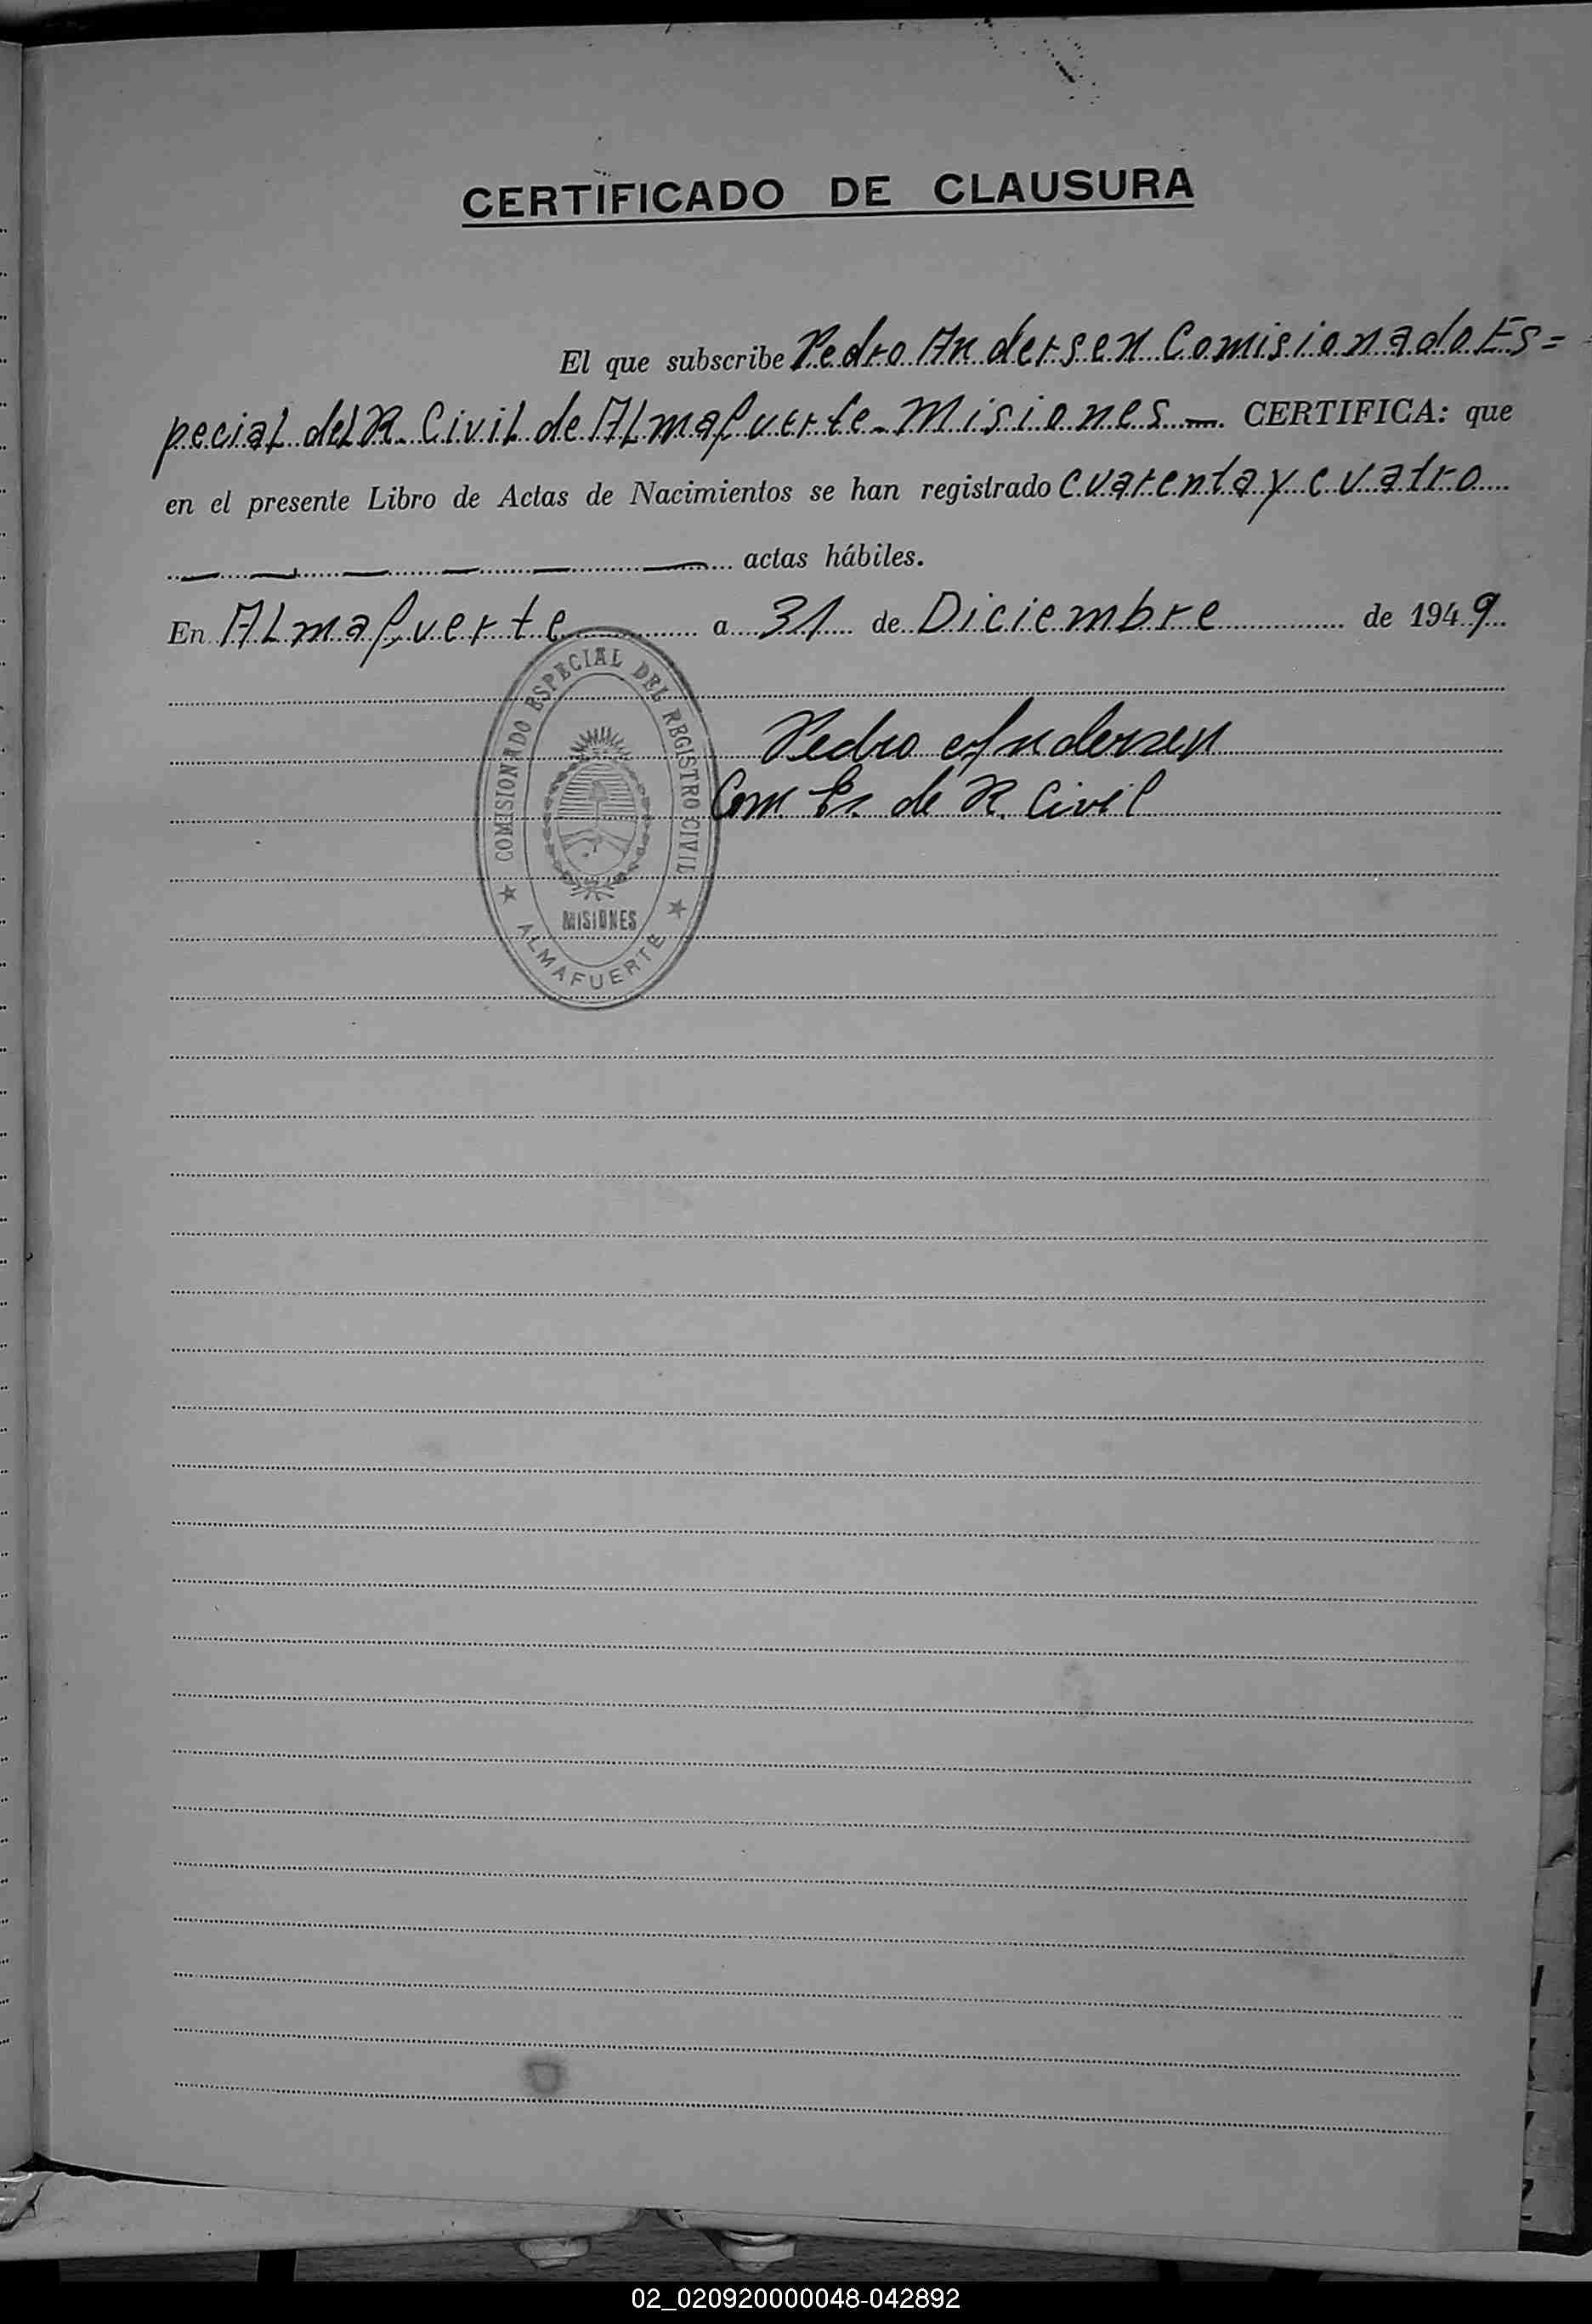 CERTIFICADO DE CLAUSURA
El que subscribe Pedro Andersen Comisionado Es=
pecial del R. Civil de ALmafuerte-Misiones — CERTIFICA: que
en el presente Libro de Actas de Nacimientos se han registrado cuarenta y cuatro
— — — — — — actas hábiles.
En ALmafuerte a 31 de Diciembre de 1949
Pedro Andersen
Com Es. de R. Civil
COMISIONADO ESPECIAL DEL REGISTRO CIVIL
MISIONES
★ ALMAFUERTE ★
02_020920000048-042892